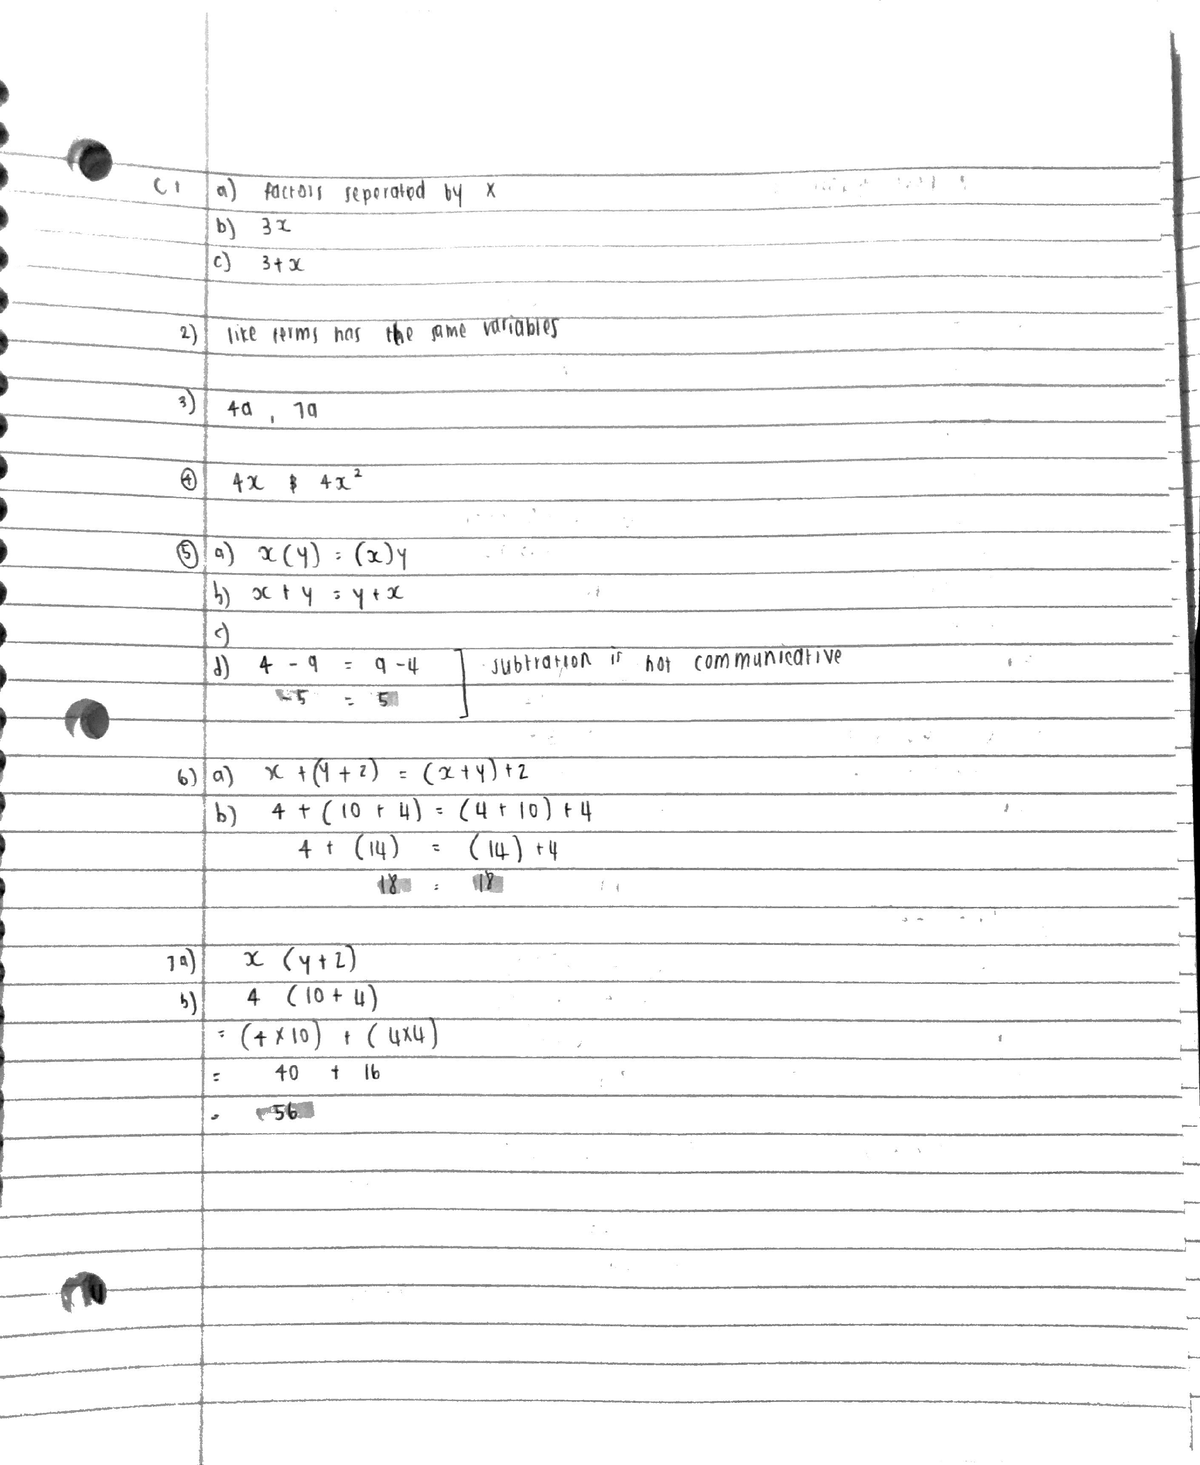 C1 a) factors seperated by x
b) 3x
c) 3+x
2) like terms has the same variables
3) 4a , 7a
④ 4x & 4x²
⑤ a) x(y) = (x)y
b) x + y = y + x
c)
d) 4 - 9 = 9 - 4 ] subtration is not communicative
-5 = 5
6) a) x + (y + 2) = (x + y) + 2
b) 4 + (10 + 4) = (4 + 10) + 4
4 + (14) = (14) + 4
18 = 18
7a) x (y + 2)
b) 4 (10 + 4)
= (4 x 10) + (4x4)
= 40 + 16
= 56